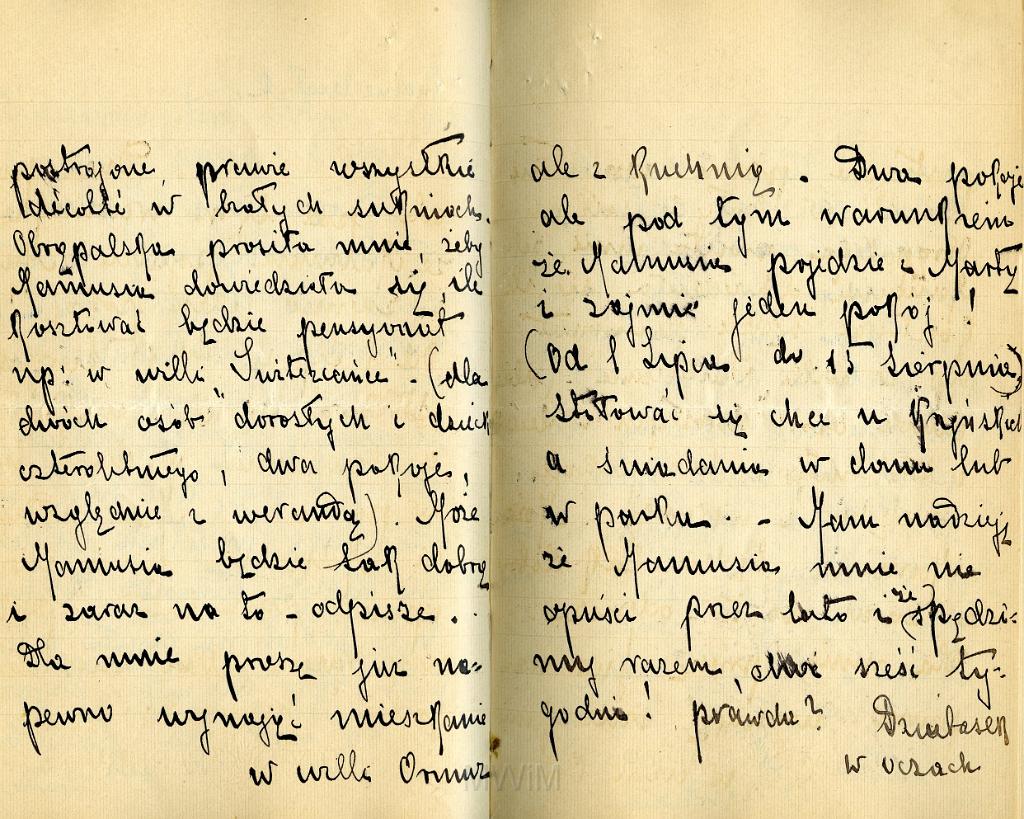 postrojone prawie wszystkie
w białych sukniach.
Obrąpalska prosiła mnie, żeby
Mamusia dowiedziała się, ile
kosztować będzie pensyonat
np: w willi „Świtezianka". (dla
dwóch osób dorosłych i dziecka
czteroletniego, dwa pokoje,
względnie z werandą). Może
Mamusia będzie tak dobrą
i zaraz na to – odpisze.
Dla mnie proszę już na=
pewno wynająć mieszkanie
w willi Ormuz
ale z kuchnią. Dwa pokoje
ale pod tym warunkiem
że Mamusia pojedzie z Martą
i zajmie jeden pokój!
(Od 1 Lipca do 15 Sierpnia)
Stołować się chcę u
a śniadania w domu lub
w parku. – Mam nadzieję
że Mamusia mnie nie
opuści przez lato i że spędzi-
my razem, choć sześć ty-
godni! prawda? Dziubasek
w oczach
MWiM